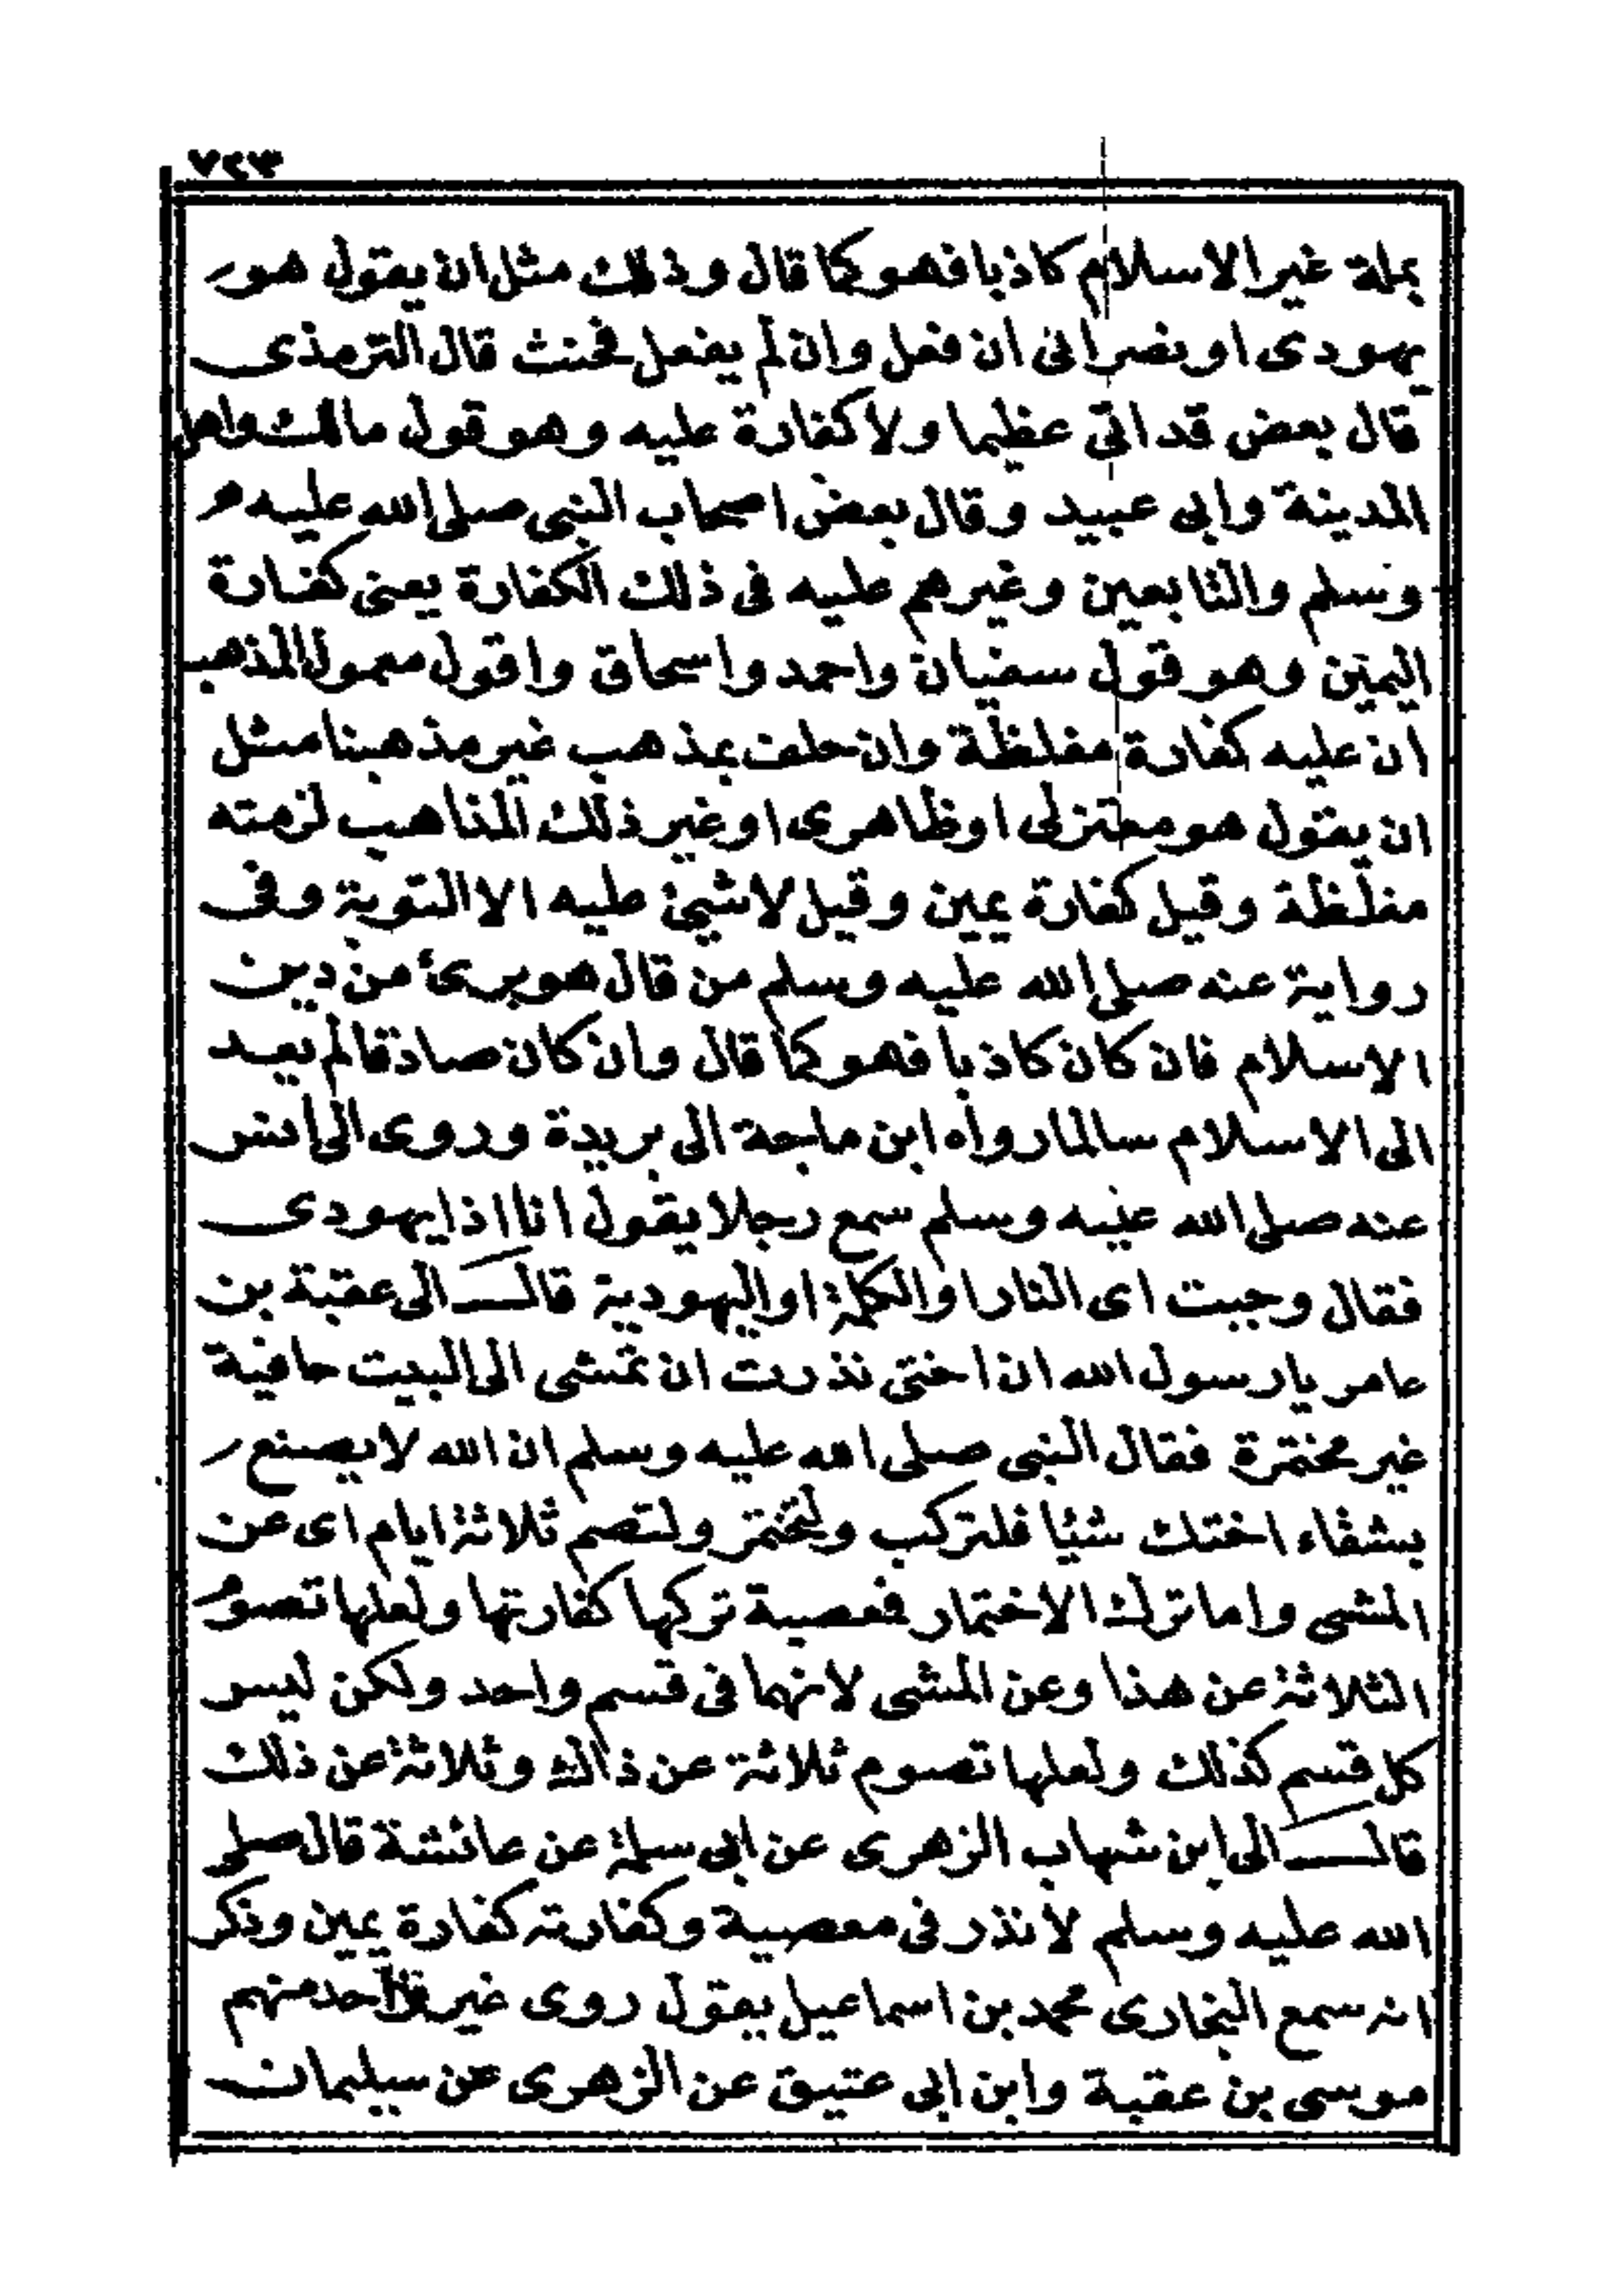 ٧٢٣
بملة غير الاسلام كاذبا فهو كما قال وذلك مثل ان يقول هو
يهودى او نصرانى ان فعل وان لم يفعل فحنث قال الترمذى
قال بعض قد اتى عظيما ولا كفارة عليه وهو قول مالك واهل
المدينة وابى عبيد وقال بعض اصحاب النبى صلى الله عليه و
وسلم والتابعين وغيرهم عليه فى ذلك الكفارة يعنى كفارة
اليمين وهو قول سفيان واحمد واسحاق واقول معمول المذهب
ان عليه كفارة مغلظة وان حلف بمذهب غير مذهبنا مثل
ان يقول هو معتزلى او ظاهرى او غير ذلك المذاهب لزمته
مغلظة وقيل كفارة يمين وقيل لا شيئ عليه الا التوبة وفى
رواية عنه صلى الله عليه وسلم من قال هو برئ من دين
الاسلام فان كان كاذبا فهو كما قال وان كان صادقا لم يعد
الى الاسلام سالما رواه ابن ماجة الى بريدة وروى الى انس
عنه صلى الله عليه وسلم سمع رجلا يقول انا اذا يهودى
فقال وجبت اى النار او الكلمة او اليهودية قال الى عقبة بن
عامر يا رسول الله ان اختى نذرت ان تمشى الى البيت حافية
غير مختمرة فقال النبى صلى الله عليه وسلم ان الله لا يصنع
بشقاء اختك شيئا فلتركب ولتختمر ولتصم ثلاثة ايام اى عن
المشى واما ترك الاختمار فمعصية تركها كفارتها ولعلها تصوم
الثلاثة عن هذا وعن المشى لانهما فى قسم واحد ولكن ليس
كل قسم كذلك ولعلها تصوم ثلاثة عن ذاك وثلاثة عن ذلك
قال الى ابن شهاب الزهرى عن ابى سلمة عن عائشة قال صلى
الله عليه وسلم لا نذر فى معصية وكفارته كفارة يمين وذكر
انه سمع البخارى محمد بن اسماعيل يقول روى غير واحد منهم
موسى بن عقبة وابن ابى عتيق عن الزهرى عن سليمان